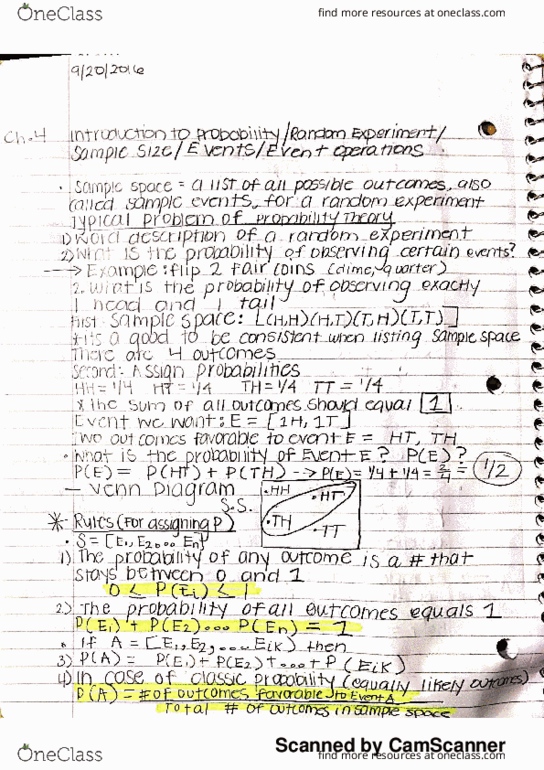 OneClass
find more resources at oneclass.com
9/20/2016
Ch.4 Introduction to Probability/Random Experiment/
Sample Size/Events/Event Operations
• Sample space = a list of all possible outcomes, also
called sample events, for a random experiment
Typical Problem of Probability Theory
1) Word description of a random experiment
2) What is the probability of observing certain events?
→ Example: flip 2 fair coins (dime, quarter)
2. What is the probability of observing exactly
1 head and 1 tail
First: Sample space: [(H,H)(H,T)(T,H)(T,T)]
* its a good to be consistent when listing sample space
There are 4 outcomes
Second: Assign probabilities
HH = 1/4 HT = 1/4 TH = 1/4 TT = 1/4
* the sum of all outcomes should equal 1
Event we want: E = [1H, 1T]
Two outcomes favorable to event E = HT, TH
• What is the probability of Event E? P(E)?
P(E) = P(HT) + P(TH) --> P(E) = 1/4 + 1/4 = 2/4 = 1/2
– Venn Diagram
S.S.
•HH
•HT
•TH
•TT
* Rules (For assigning P)
• S = [E1, E2... En]
1) The probability of any outcome is a # that
stays between 0 and 1
0 < P(Ei) < 1
2) The probability of all outcomes equals 1
P(E1) + P(E2)... P(En) = 1
• If A = [E1, E2, .... Eik) then
3) P(A) = P(E1) + P(E2) + ... + P(Eik)
4) In case of classic probability (equally likely outcomes)
P(A) = # of outcomes favorable to Event A
Total # of outcomes in sample space
Scanned by CamScanner
OneClass
find more resources at oneclass.com